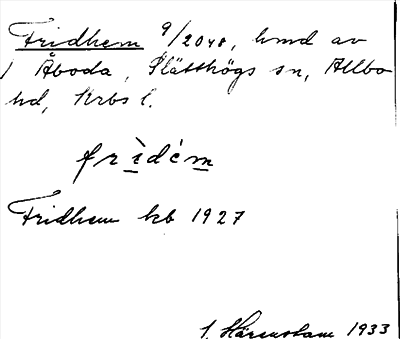 Fridhem 9/2048, hmd av
1 Åboda, Slätthögs sn, Allbo
hd, Krbs l.
frìdém
Fridhem kb 1927
Härenstam 1933